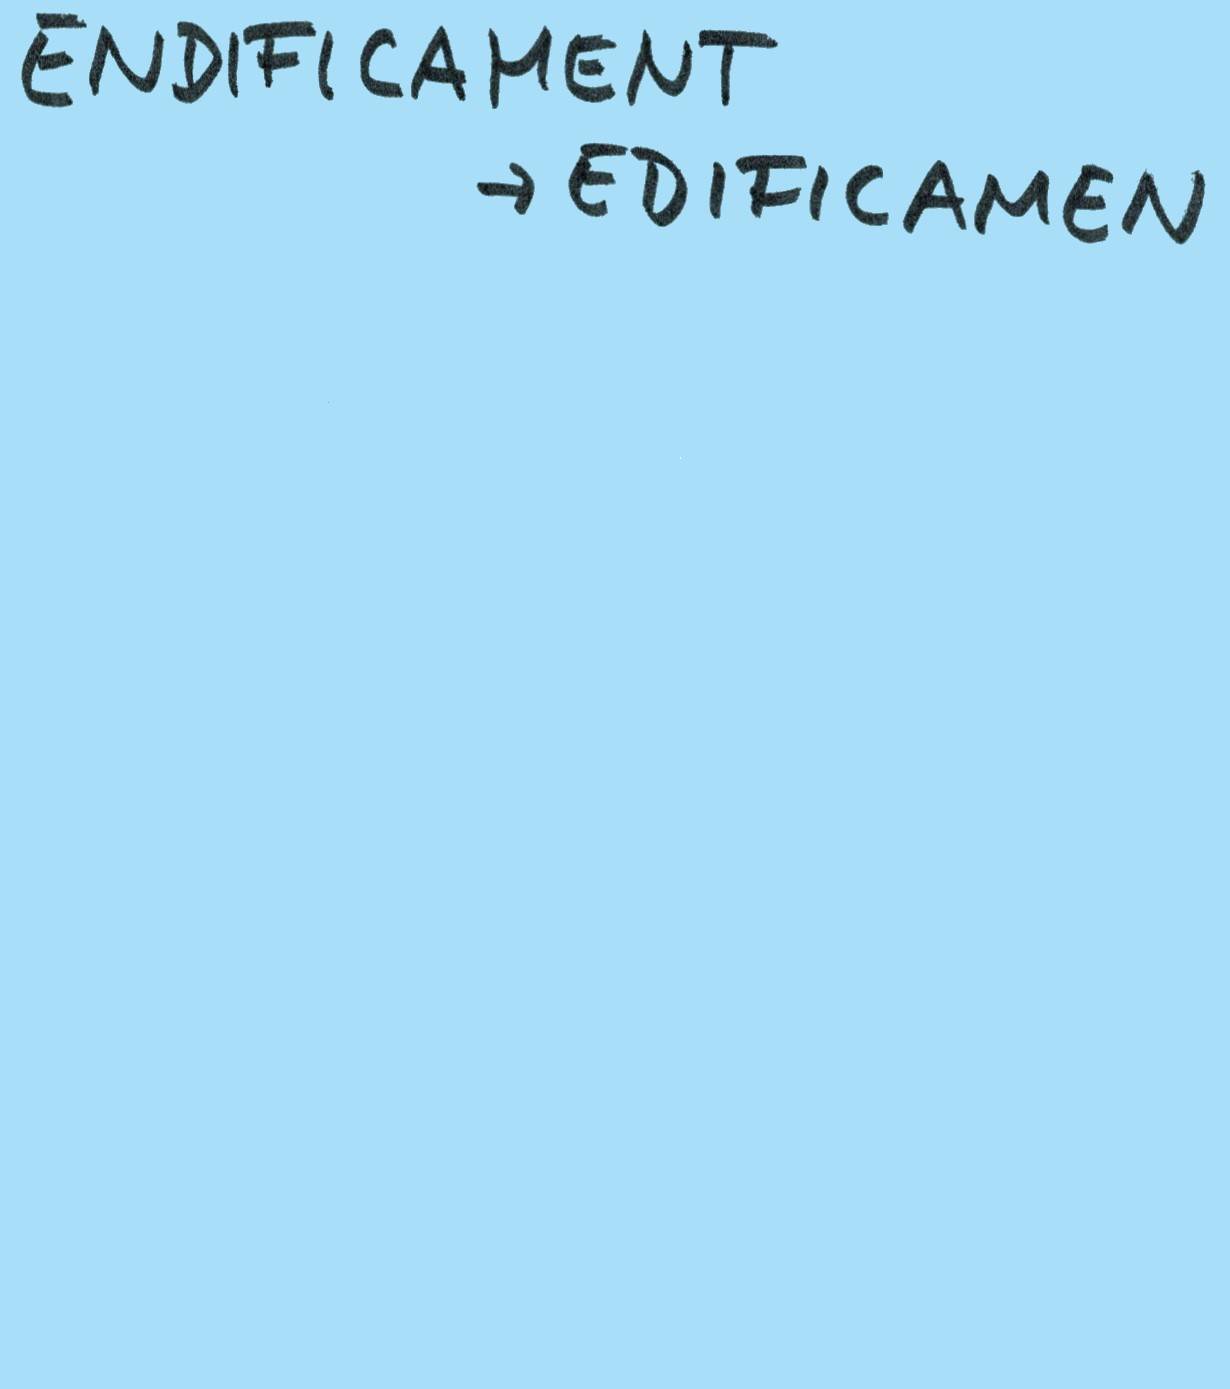 ENDIFICAMENT
→ EDIFICAMEN